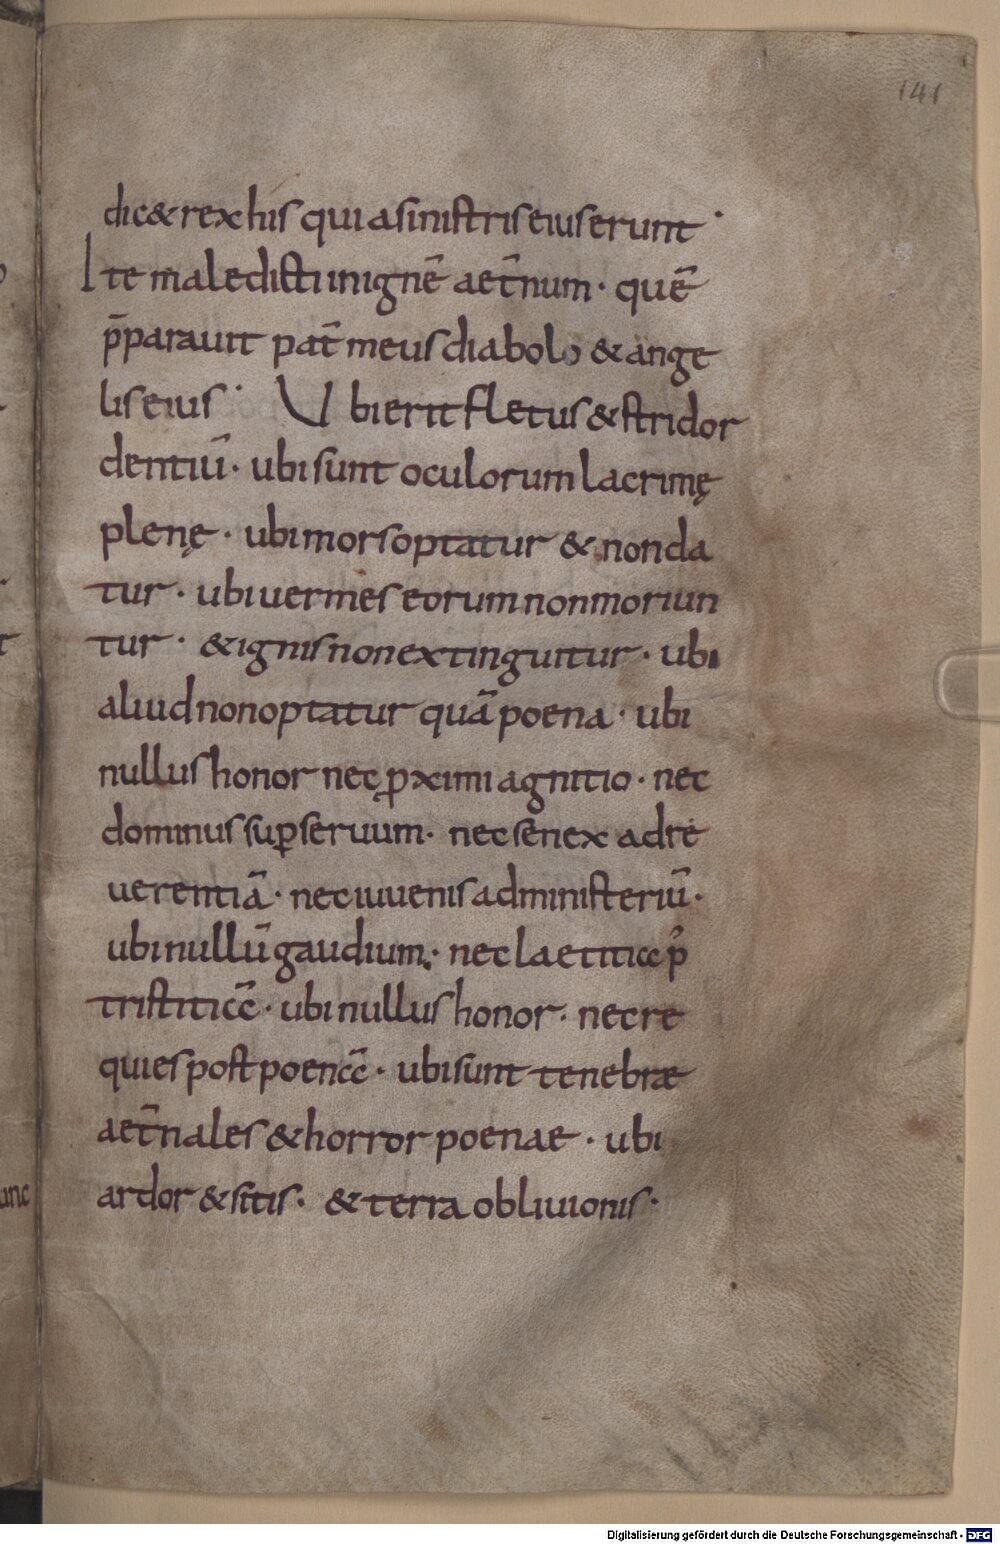 141
dic& rex his qui a sinistris eius erunt ·
Ite maledicti in ignē aet̄num · quē
p̄parauit pat̄ meus diabolo & ange
lis eius · Ubi erit fletus & stridor
dentiū · ubi sunt oculorum lacrimę
plenę · ubi mors optatur & non da
tur · ubi uermes eorum non moriun
tur · & ignis non extinguitur · ubi
aliud non optatur quā poena · ubi
nullus honor nec ꝓximi agnitio · nec
dominus suꝑ seruum · nec senex ad re
uerentiā · nec iuuenis ad ministeriū ·
ubi nullū gaudium · nec laetitia p̓
tristitiā · ubi nullus honor · nec re
quies post poenā · ubi sunt tenebræ
aet̄nales & horror poenae · ubi
ardor & sitis · & terra obliuionis ·
unc
Digitalisierung gefördert durch die Deutsche Forschungsgemeinschaft - DFG